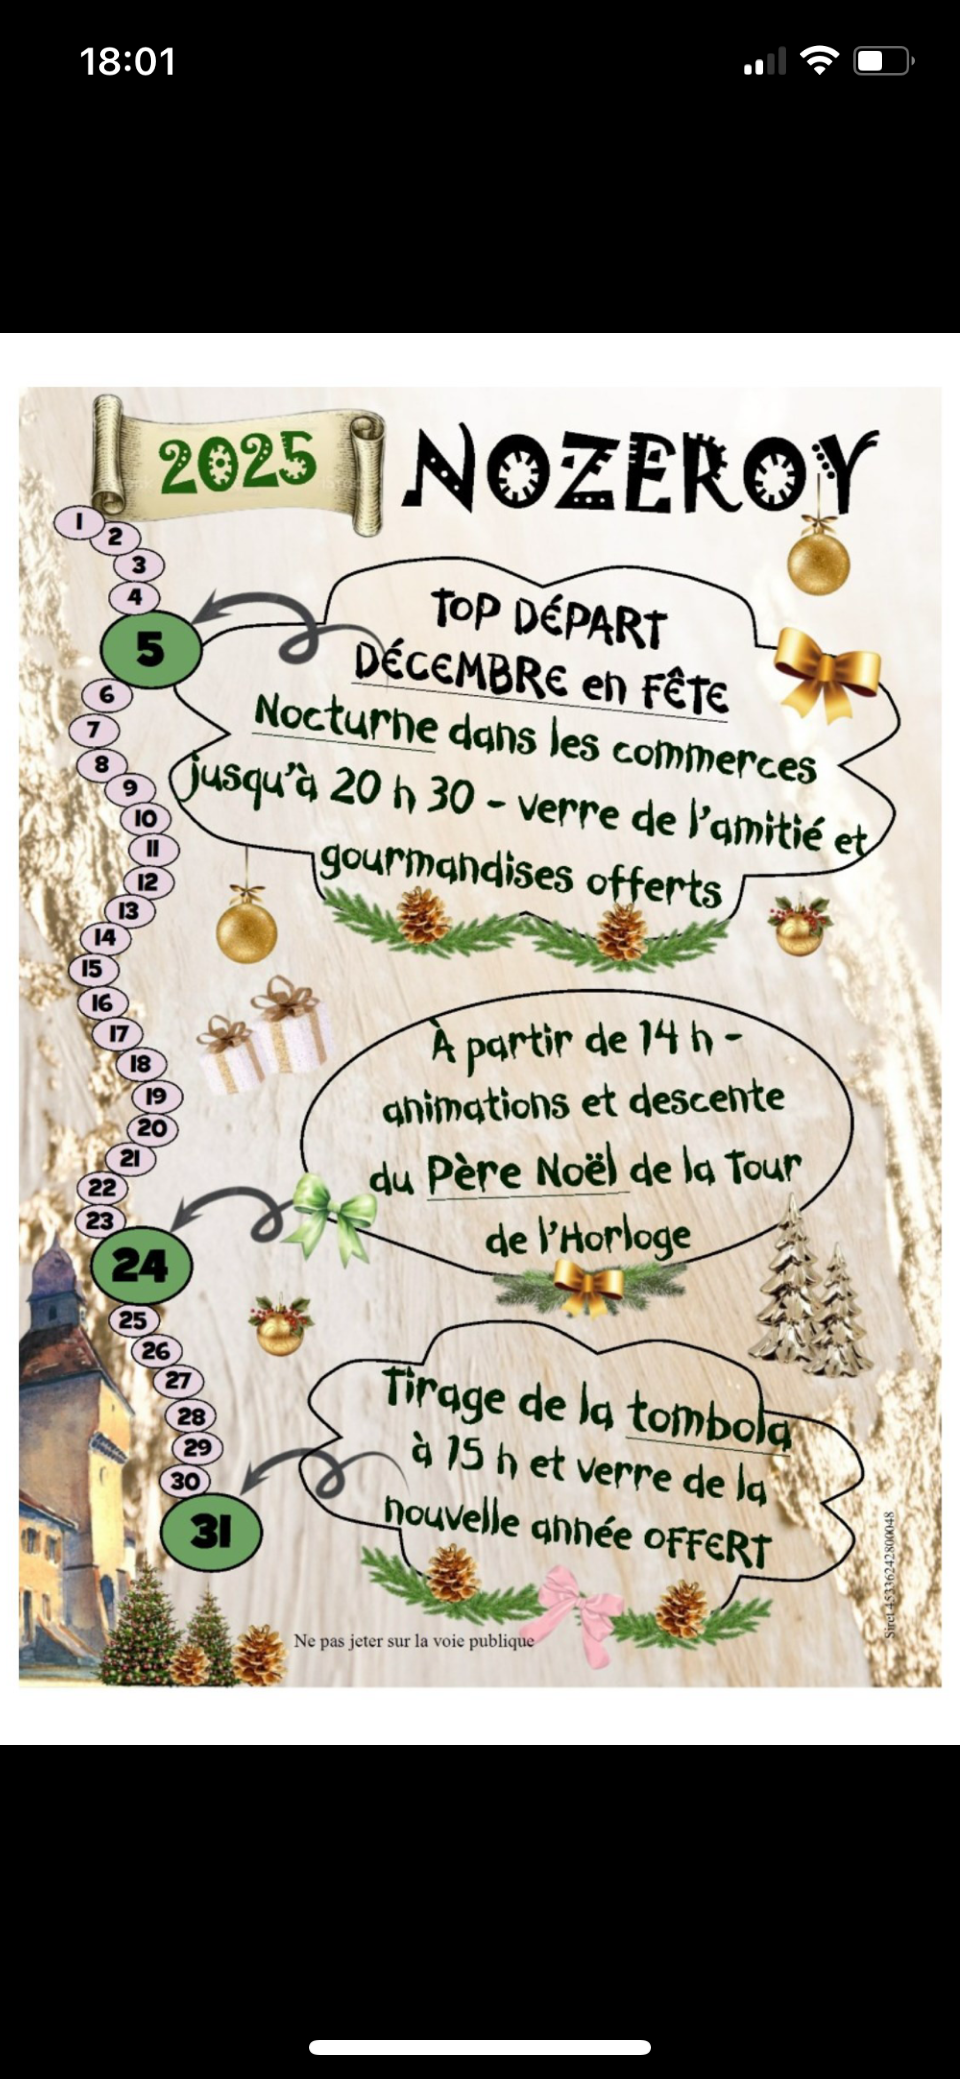 18:01
2025 NOZEROY
1
2
3
4
5
6
7
8
9
10
11
12
13
14
15
16
17
18
19
20
21
22
23
24
25
26
27
28
29
30
31
TOP DÉPART
DÉCEMBRE en FÊTE
Nocturne dans les commerces
jusqu'à 20 h 30 - verre de l'amitié et
gourmandises offerts
À partir de 14 h -
animations et descente
du Père Noël de la Tour
de l'Horloge
Tirage de la tombola
à 15 h et verre de la
nouvelle année OFFERT
Ne pas jeter sur la voie publique
Siret 45336242800048